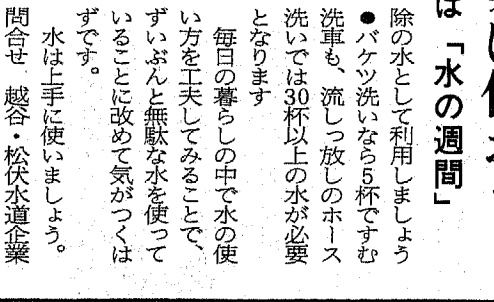 は「水の週間」
除の水として利用しましょう
●バケツ洗いなら5杯ですむ
洗車も、流しっ放しのホース
洗いでは30杯以上の水が必要
となります
毎日の暮らしの中で水の使
い方を工夫してみることで、
ずいぶんと無駄な水を使って
いることに改めて気がつくは
ずです。
水は上手に使いましょう。
問合せ 越谷・松伏水道企業